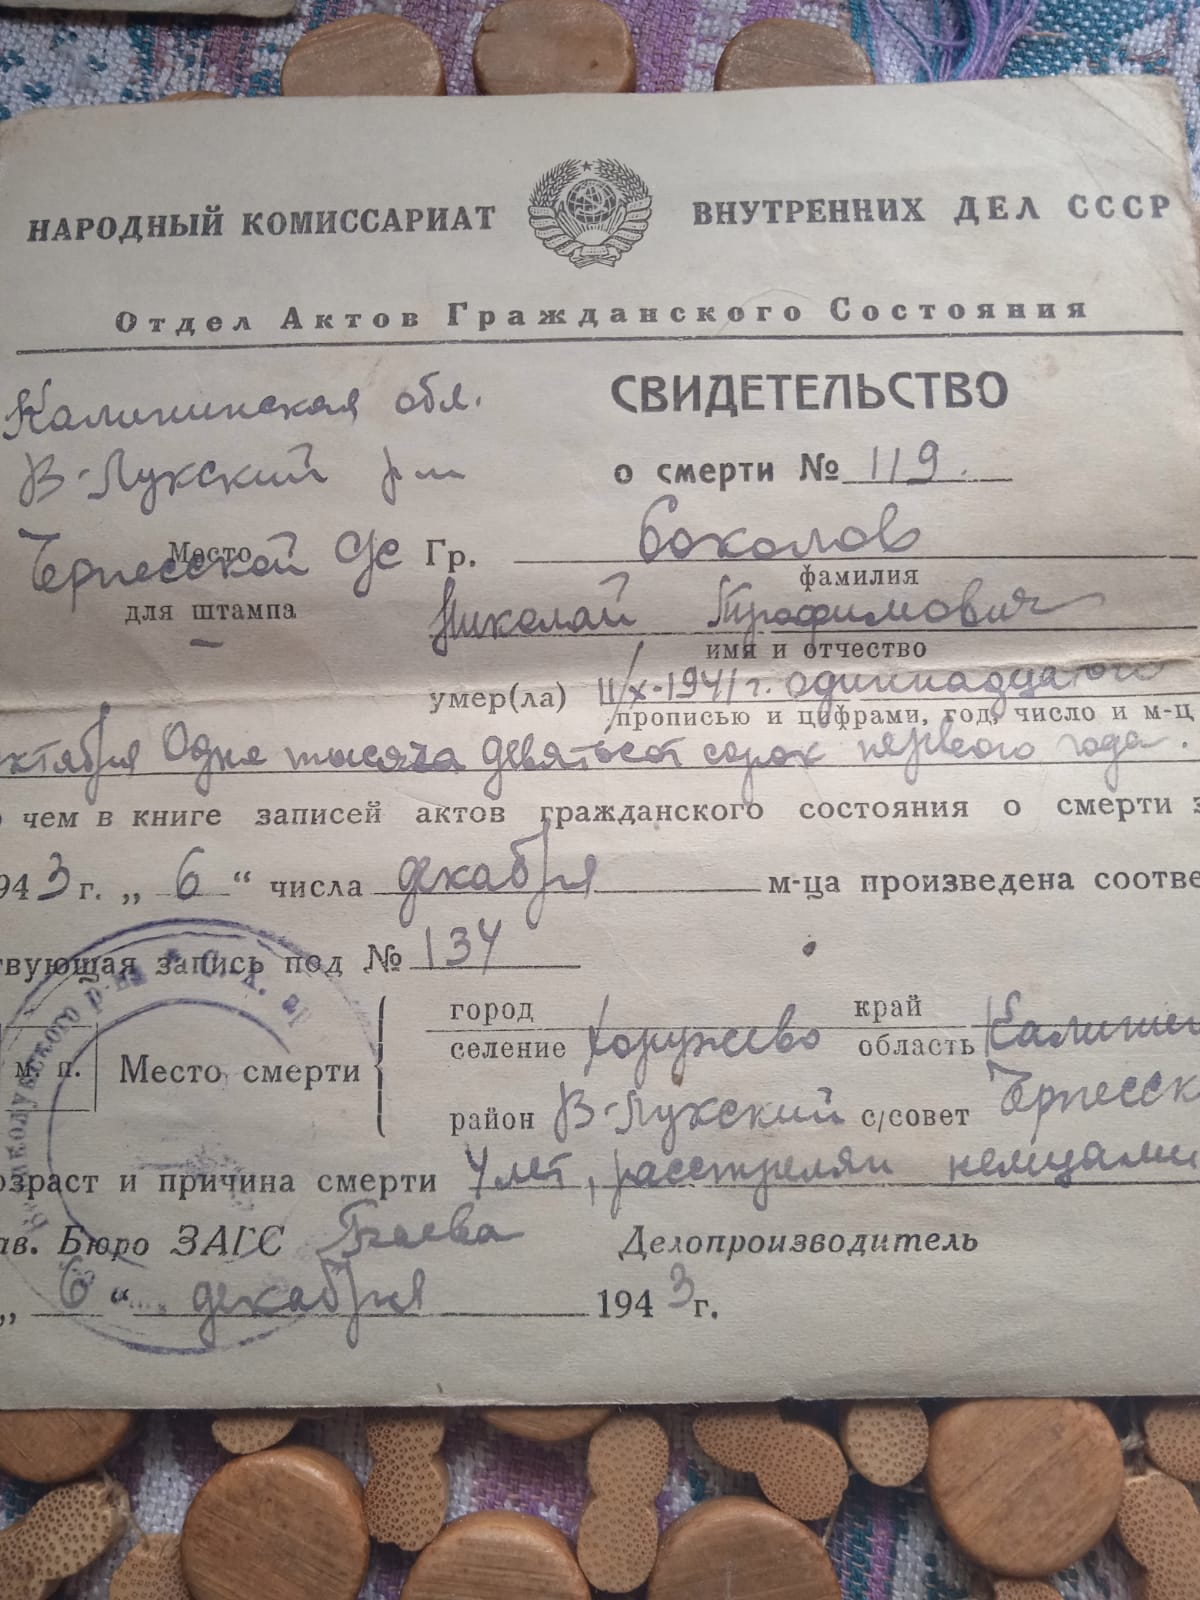 НАРОДНЫЙ КОМИССАРИАТ ВНУТРЕННИХ ДЕЛ СССР
Отдел Актов Гражданского Состояния
Калининская обл.
В-Лукский р-н
Черпесской С/с
Место
для штампа
СВИДЕТЕЛЬСТВО
о смерти № 119.
Гр. Соколов
фамилия
Николай Трофимович
имя и отчество
умер(ла) 11/X-1941 г. одиннадцатого
прописью и цифрами, год, число и м-ц
октября Одна тысяча девятьсот сорок первого года.
о чем в книге записей актов гражданского состояния о смерти з
943 г. „ 6 “ числа декабря м-ца произведена соотве
твующая запись под № 134
м. п.
Место смерти
город край
селение Хоружево область Калинин
район В-Лукский с/совет Черпесск
озраст и причина смерти 4 лет, расстрелян немцами
ав. Бюро ЗАГС
Делопроизводитель
„ 6 “ декабря 1943 г.